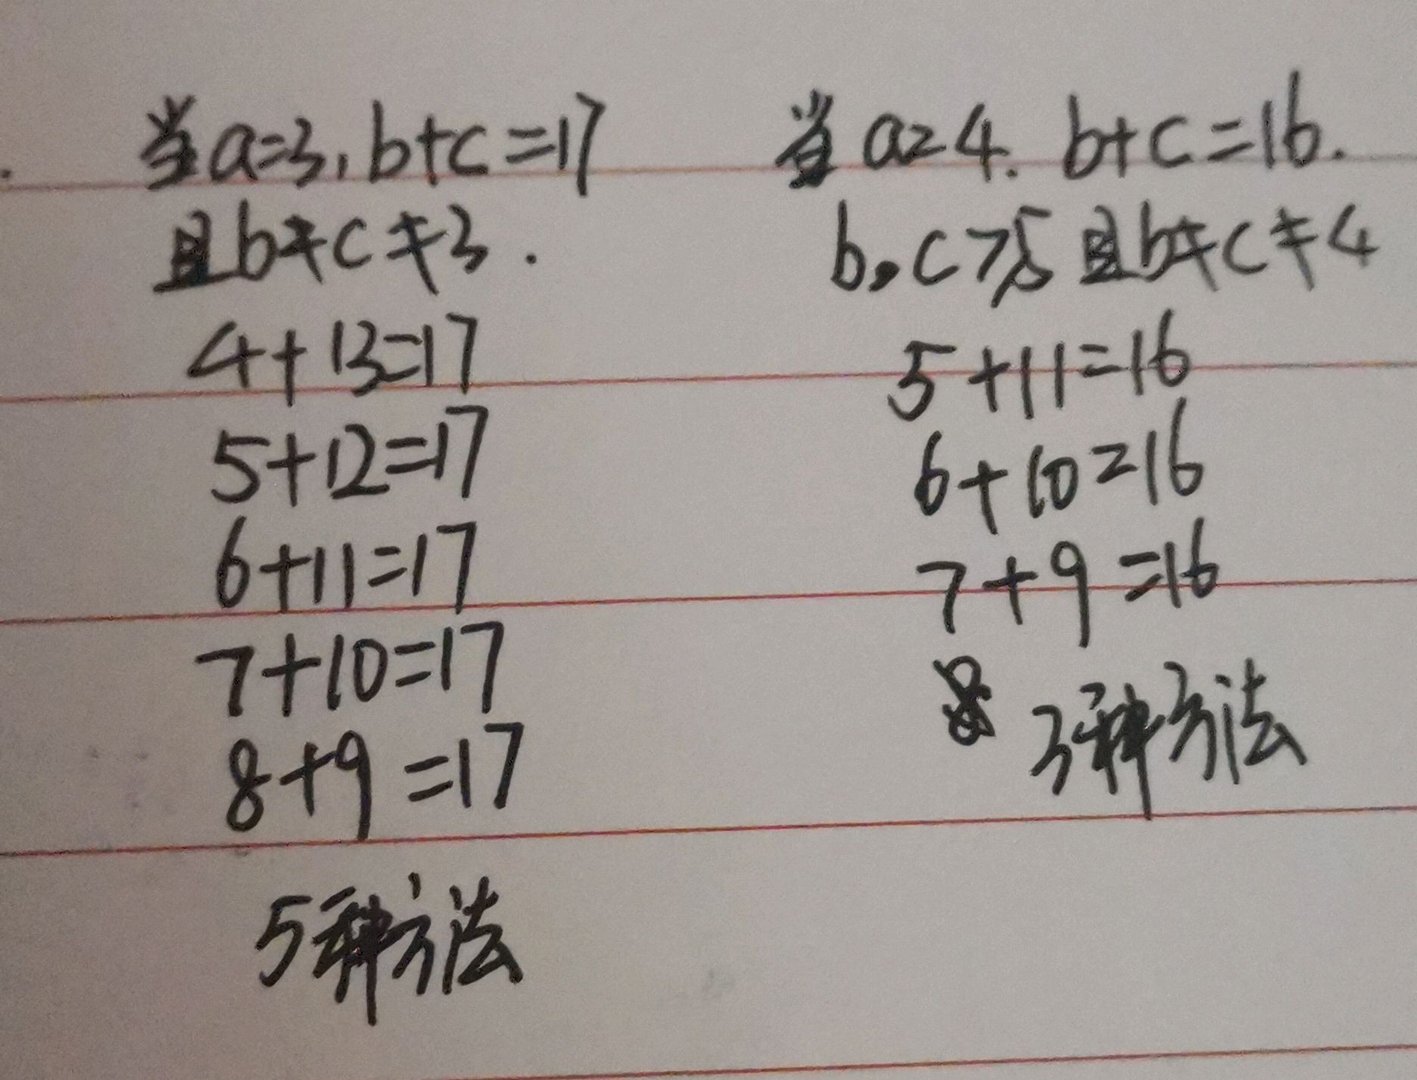 当a=3,b+c=17
且b≠c≠3.
4+13=17
5+12=17
6+11=17
7+10=17
8+9=17
5种方法
当a=4.b+c=16.
b,c≥5且b≠c≠4
5+11=16
6+10=16
7+9=16
3种方法